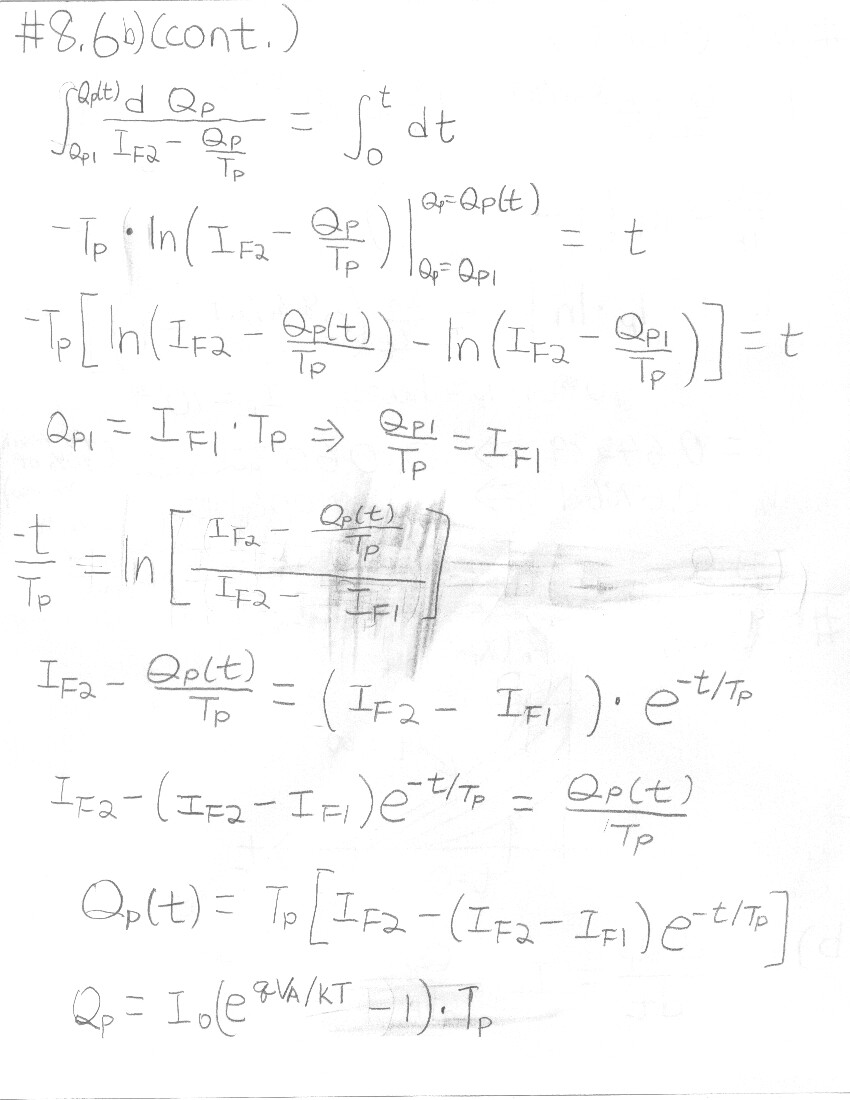 #8.6b)(cont.)
∫_{Qp1}^{Qp(t)} d Qp / (I_F2 - Qp/Tp) = ∫_0^t dt
-Tp · ln(I_F2 - Qp/Tp) |_{Qp=Qp1}^{Qp=Qp(t)} = t
-Tp[ln(I_F2 - Qp(t)/Tp) - ln(I_F2 - Qp1/Tp)] = t
Qp1 = I_F1 · Tp ⇒ Qp1/Tp = I_F1
-t/Tp = ln[(I_F2 - Qp(t)/Tp) / (I_F2 - I_F1)]
I_F2 - Qp(t)/Tp = (I_F2 - I_F1) · e^{-t/Tp}
I_F2 - (I_F2 - I_F1)e^{-t/Tp} = Qp(t)/Tp
Qp(t) = Tp[I_F2 - (I_F2 - I_F1)e^{-t/Tp}]
Qp = I_0(e^{qV_A/kT} - 1) · Tp